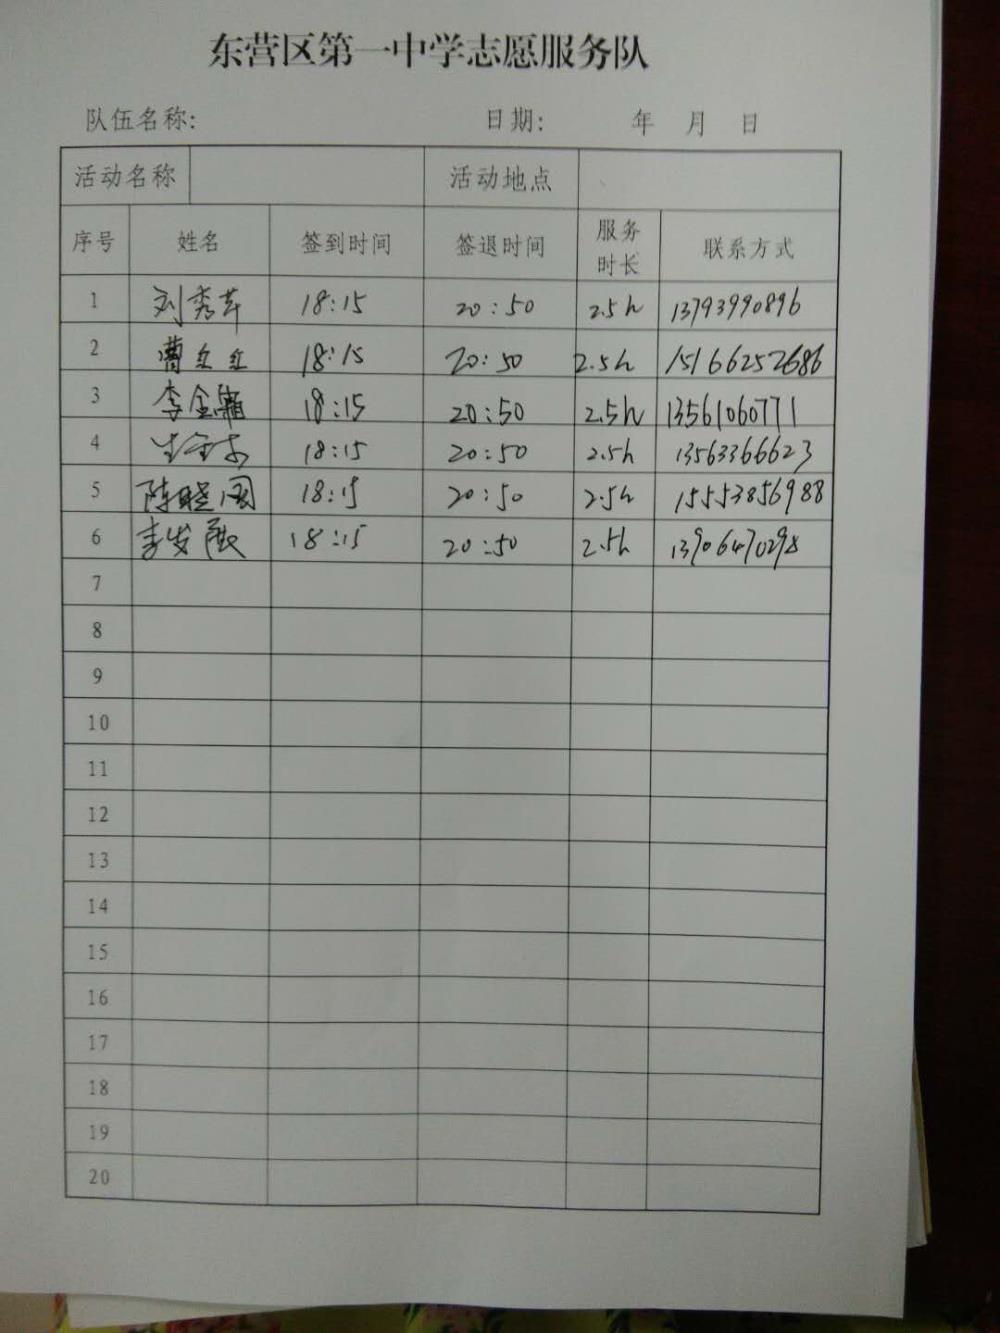 东营区第一中学志愿服务队
队伍名称: 日期: 年 月 日
活动名称 活动地点
序号 姓名 签到时间 签退时间 服务时长 联系方式
1 刘秀芹 18:15 20:50 2.5h 13793990896
2 曹红红 18:15 20:50 2.5h 15166252686
3 李金 18:15 20:50 2.5h 13561060771
4 18:15 20:50 2.5h 13563366623
5 陈晓 18:15 20:50 2.5h 15553856988
6 李发展 18:15 20:50 2.5h
7
8
9
10
11
12
13
14
15
16
17
18
19
20